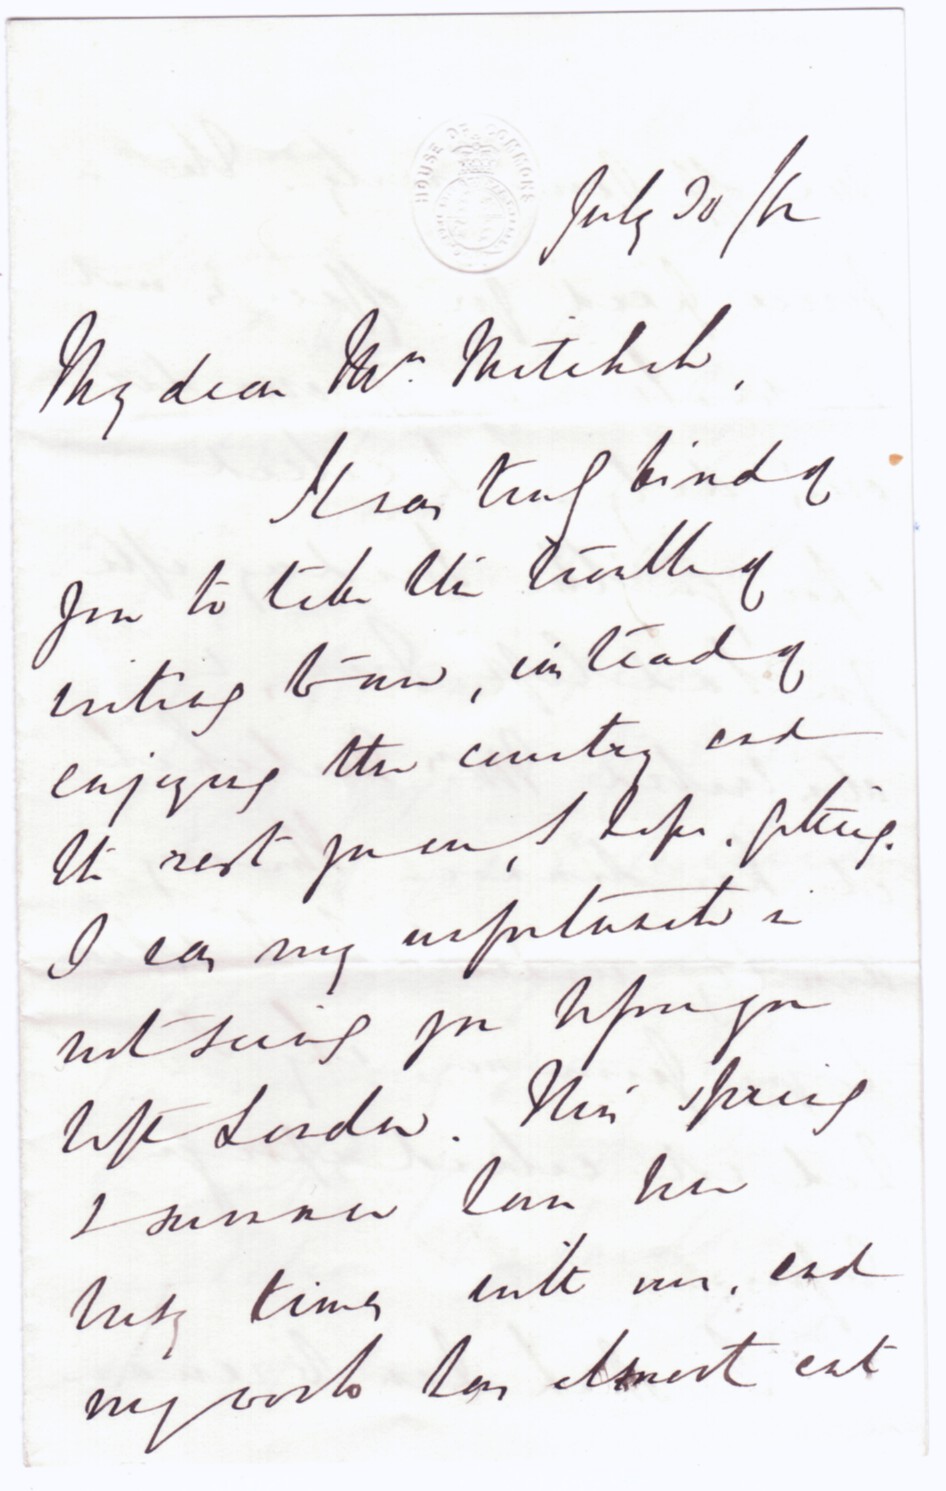 HOUSE OF COMMONS
July 30 /62
My dear Mrs. Mitchell,
It was truly kind of
you to take the trouble of
writing to me, instead of
enjoying the country and
the rest you are, I hope, getting.
I was very unfortunate in
not seeing you before you
left London. This spring
& summer have been
busy times with me, and
my work has almost cut